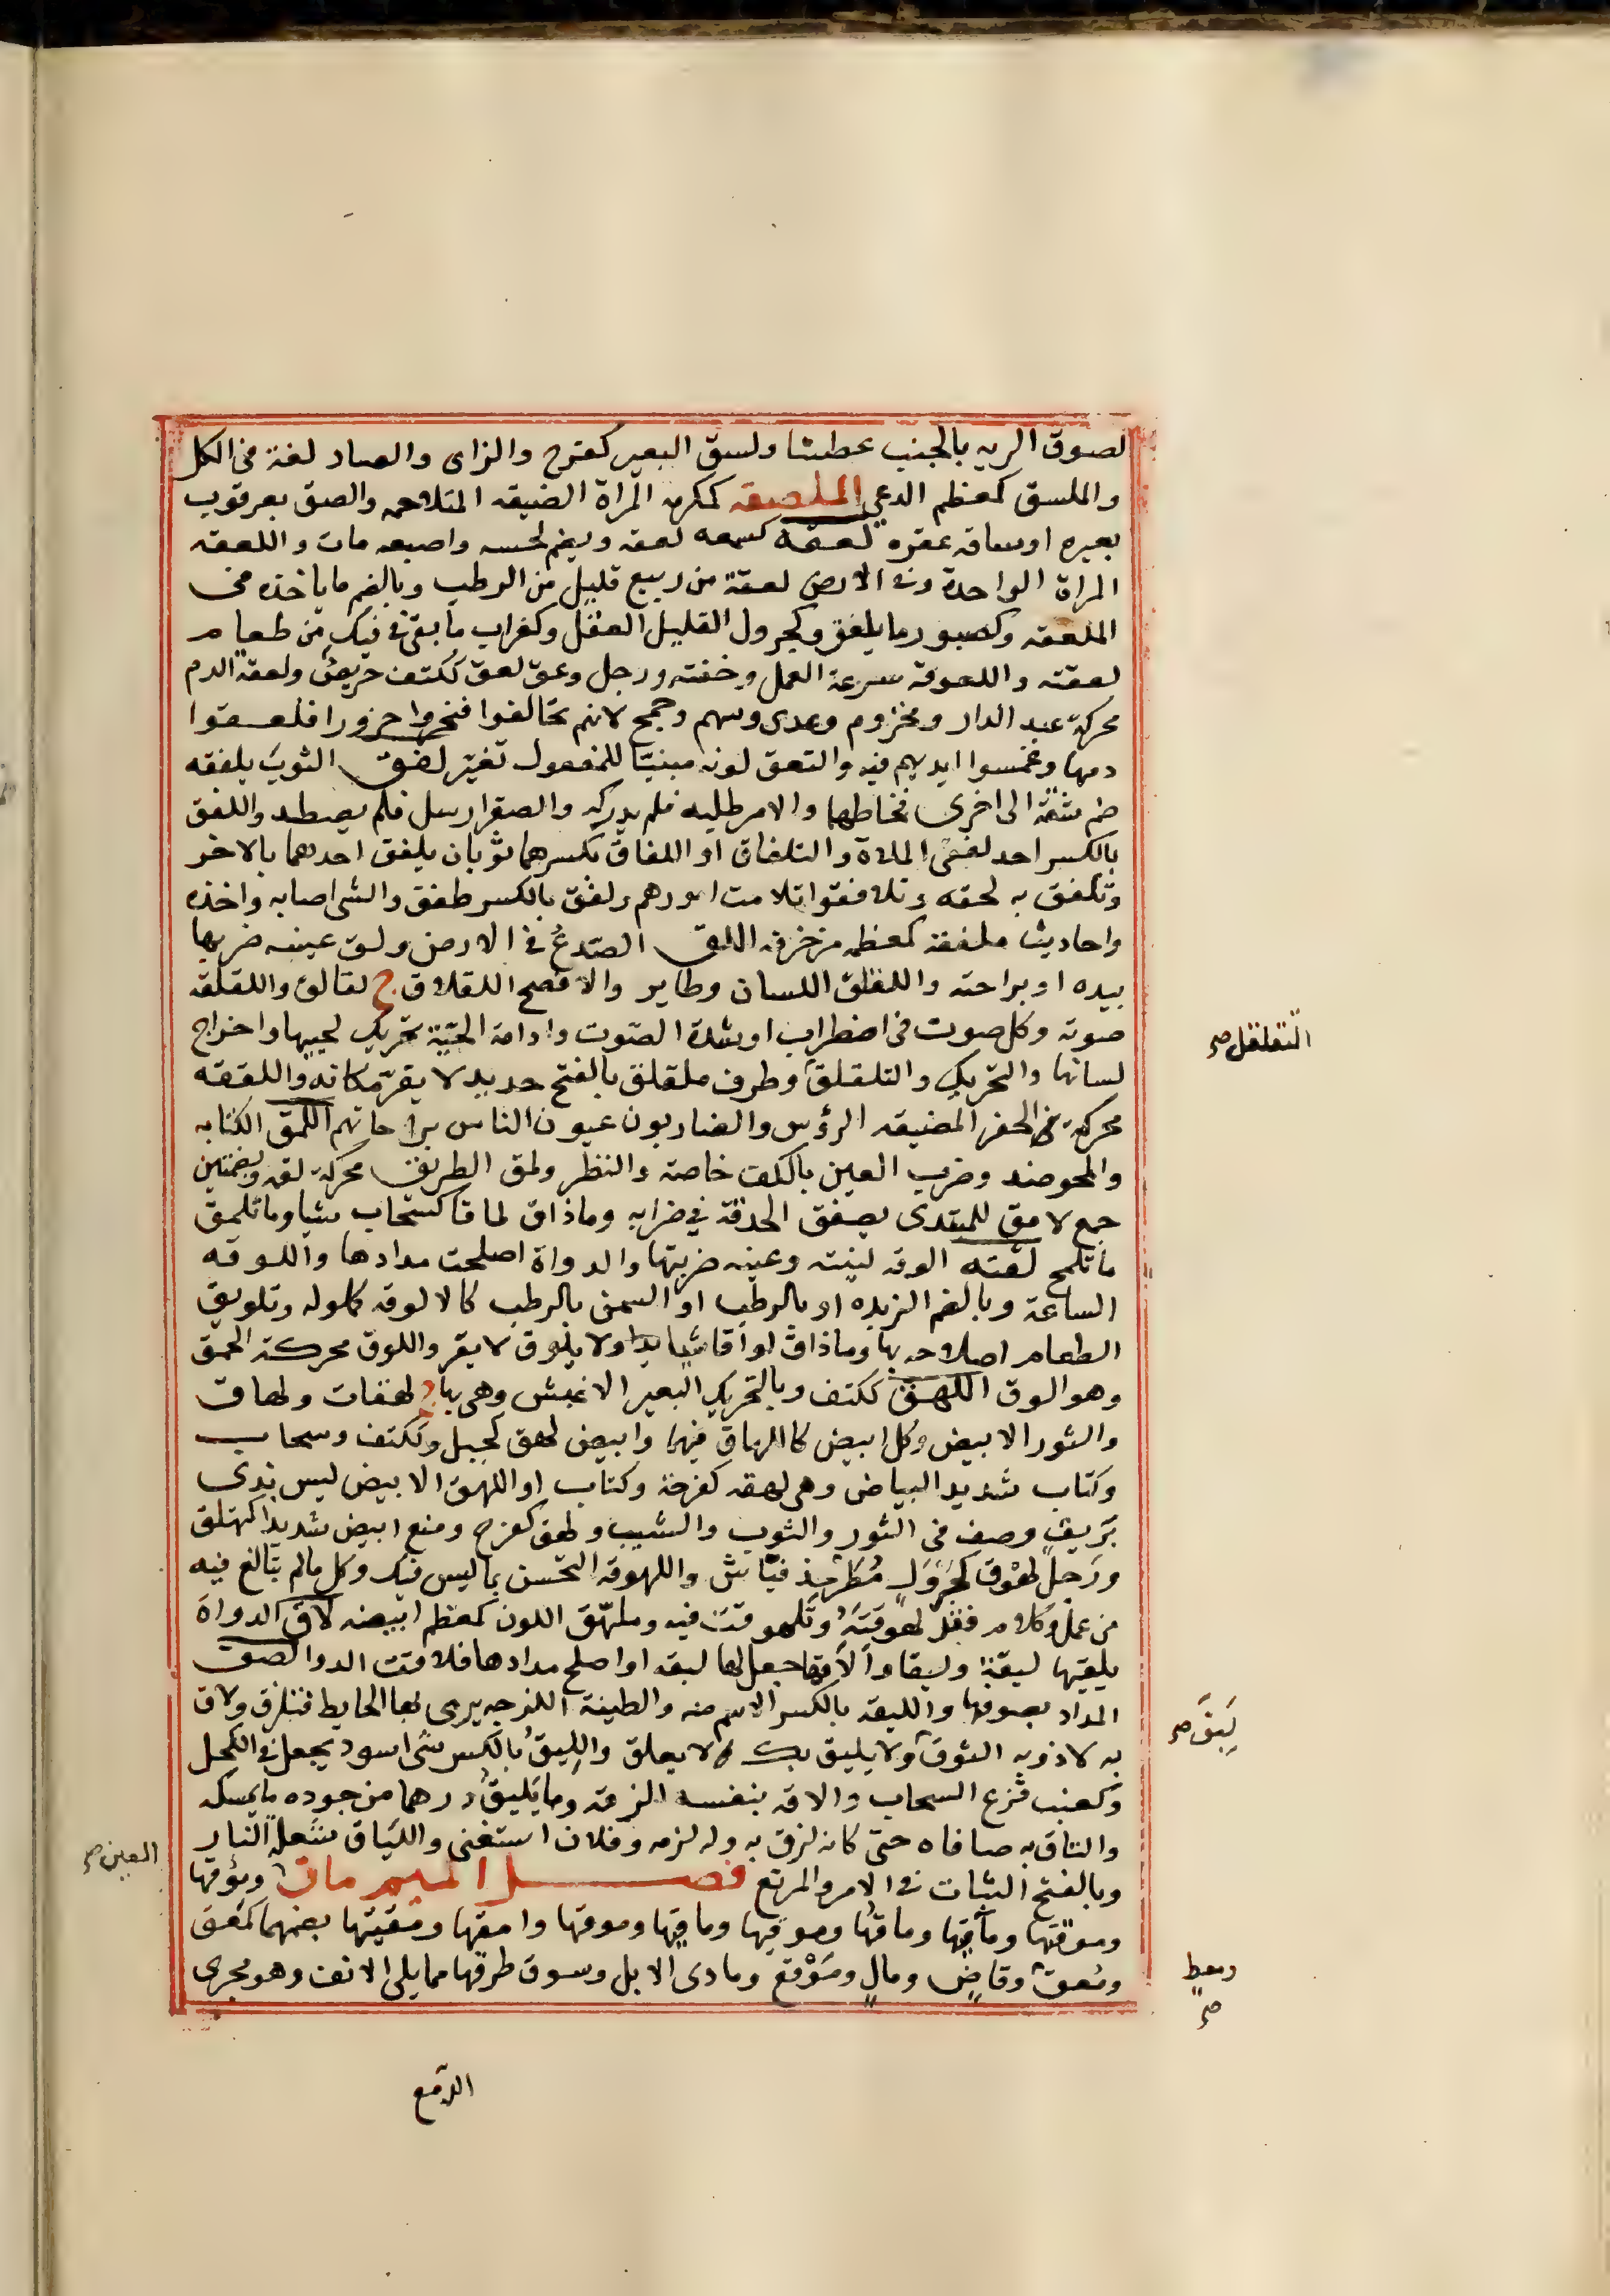 لصوق الريه بالجنب عطشا ولسق البعير كفرح والزاى والصاد لغة فى الكل
والملسق كمعظم الدعي الملصقه كمكرمه المراة الضيقه المتلاحمه والصق بعرقوب
بعيره اوساقه عقره لعقه كسمعه لعقه ويضم لحسه واصبعه مات واللعقه
المراة الواحدة وفى الارض لعقة من ربيع قليل من الرطب وبالضم ما ياخذه فى
الملعقه وكصبور ما يلعق وكجرول القليل العقل وكغراب ما بقى فى فيك من طعام
لعقته واللعوقه سرعة العمل وخفته ورجل وعق لعق ككتف حريص ولعقة الدم
محركة عبد الدار ومخزوم وعدى وسهم وجمح لانهم تحالفوا فنحروا جزورا فلعقوا
دمها وغمسوا ايديهم فيه والتعق لونه مبنيّا للمفعول تغيّر لفق الثوبَ يلفقه
ضم شقة الى اخرى فخاطهما والامر طلبه فلم يدركه والصقر ارسل فلم يصطد واللفق
بالكسر احد لفقى الملاة والتلفاق او اللفاق بكسرهما ثوبان يلفق احدهما بالاخر
وتلفق به لحقه وتلافقوا تلامت امورهم ولفق بالكسر طفق والشى اصابه واخذه
واحاديث ملفقة كمعظمه مزخرفه اللق الصّدعُ فى الارض ولق عينه ضربها
بيده او براحته واللقلق اللسان وطاير والافصح اللقلاق ج لقالق واللقلقه
صوته وكل صوت فى اضطراب او شدة الصّوت وادامة الحيّة تحريك لحييها واخراج
لسانها والتحريك والتلقلق وطرف ملقلق بالفتح حديد لا يقرّ مكانه واللققه
محركة فى الحفر المضيقه الرؤس والضاربون عيون الناس براحاتهم اللمق الكتابه
والمحو ضد وضرب العين بالكف خاصة والنظر ولمق الطريق محركة لقمه وبضمتين
جمع لامق للمبتدى بصفق الحدقة فى ضرابه وما ذاق لماقا كسحاب شيا وما تلمق
ما تلمج لقته الوقه لينته وعينه ضربتها والدواة اصلحت مدادها واللوقه
الساعة وبالضم الزبده او بالرطب او السمن بالرطب كالالوقه كملوله وتلويق
الطعام اصلاحه بها وما ذاق لواقا شيا ولا يلوق لا يقر واللوق محركة الحمق
وهو الوق اللهق ككتف وبالتحريك البعير الاعيس وهى بهاج لهقات ولهاق
والثور الابيض وكل ابيض كاللهاق فيهما وابيض لهق كجبل وككتف وسحاب
وكتاب شديد البياض وهى لهقه كفرحة وكتاب او اللهق الابيض ليس بذى
بَريق وصف فى الثور والثوب والشيب ولهق كفرح ومنع ابيض شديدا كتلهق
ورَجل لهوق كجَرْوَل مُطَرمِذ فيّاش واللهوقه التحسن بما ليس فيك وكل ما لم تبالغ فيه
من عمل وكلام فقد لهوقته وتلهوقت فيه وملهّق اللون كمعظم ابيضه لاق الدواة
يلقيها ليقة وليقا والاقها جعل لها ليقه او اصلح مدادها فلاقت الدوا لصق
المداد بصوفها والليقه بالكسر الاسم منه والطينة اللزجه يرمى بها الحايط فتلزق ولاق
به لاذ وبه الثوق ولا يليق بك لا يعلق والليق بالكسر شى اسود يجعل فى الكحل
وكعنب قزع السحاب والاقه بنفسه الزقه وما يَليق درهما من جوده ما يمسكه
والتاق به صافاه حتى كانه لزق به وله لزمه وفلان استغنى واللّياق شعلة النار
وبالفتح الثبات فى الامر والمرتع فصـل الميم ماق ومؤقها
وموقتها ومآقيها وماقها وموقيها وماقيها وموقها وامقها ومقيتها بضمهما كمعق
ومُعقٍ وقاضٍ ومالٍ ومَوْقع وماوى الابل وسوق طرفها مما يلى الانف وهو مجرى
التقلقل صح
لَيِقَ صح
العين صح
ومعطٍ صح
الدمع